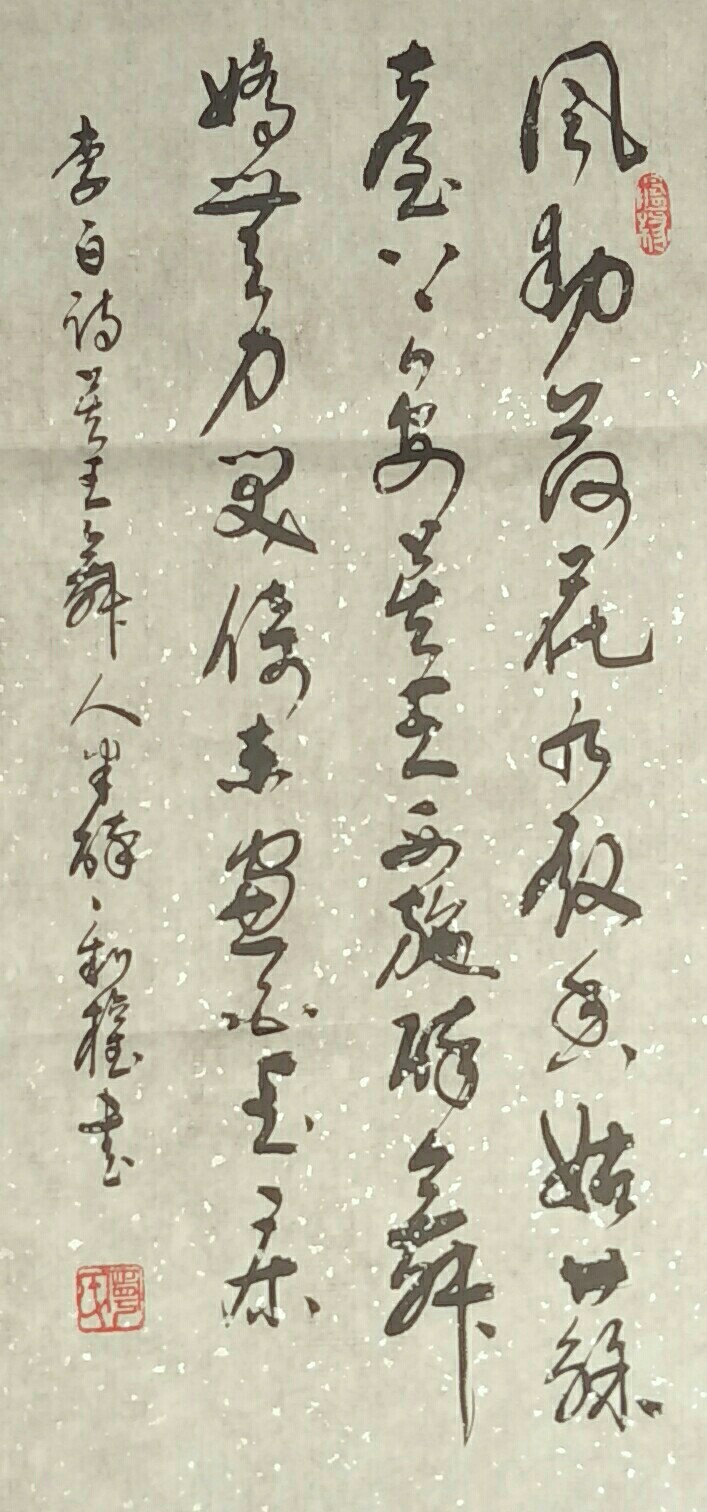 風動荷花水殿香姑蘇
臺上宴吳王西施醉舞
嬌無力笑倚東窗白玉床
李白詩吳王舞人半醉利權書